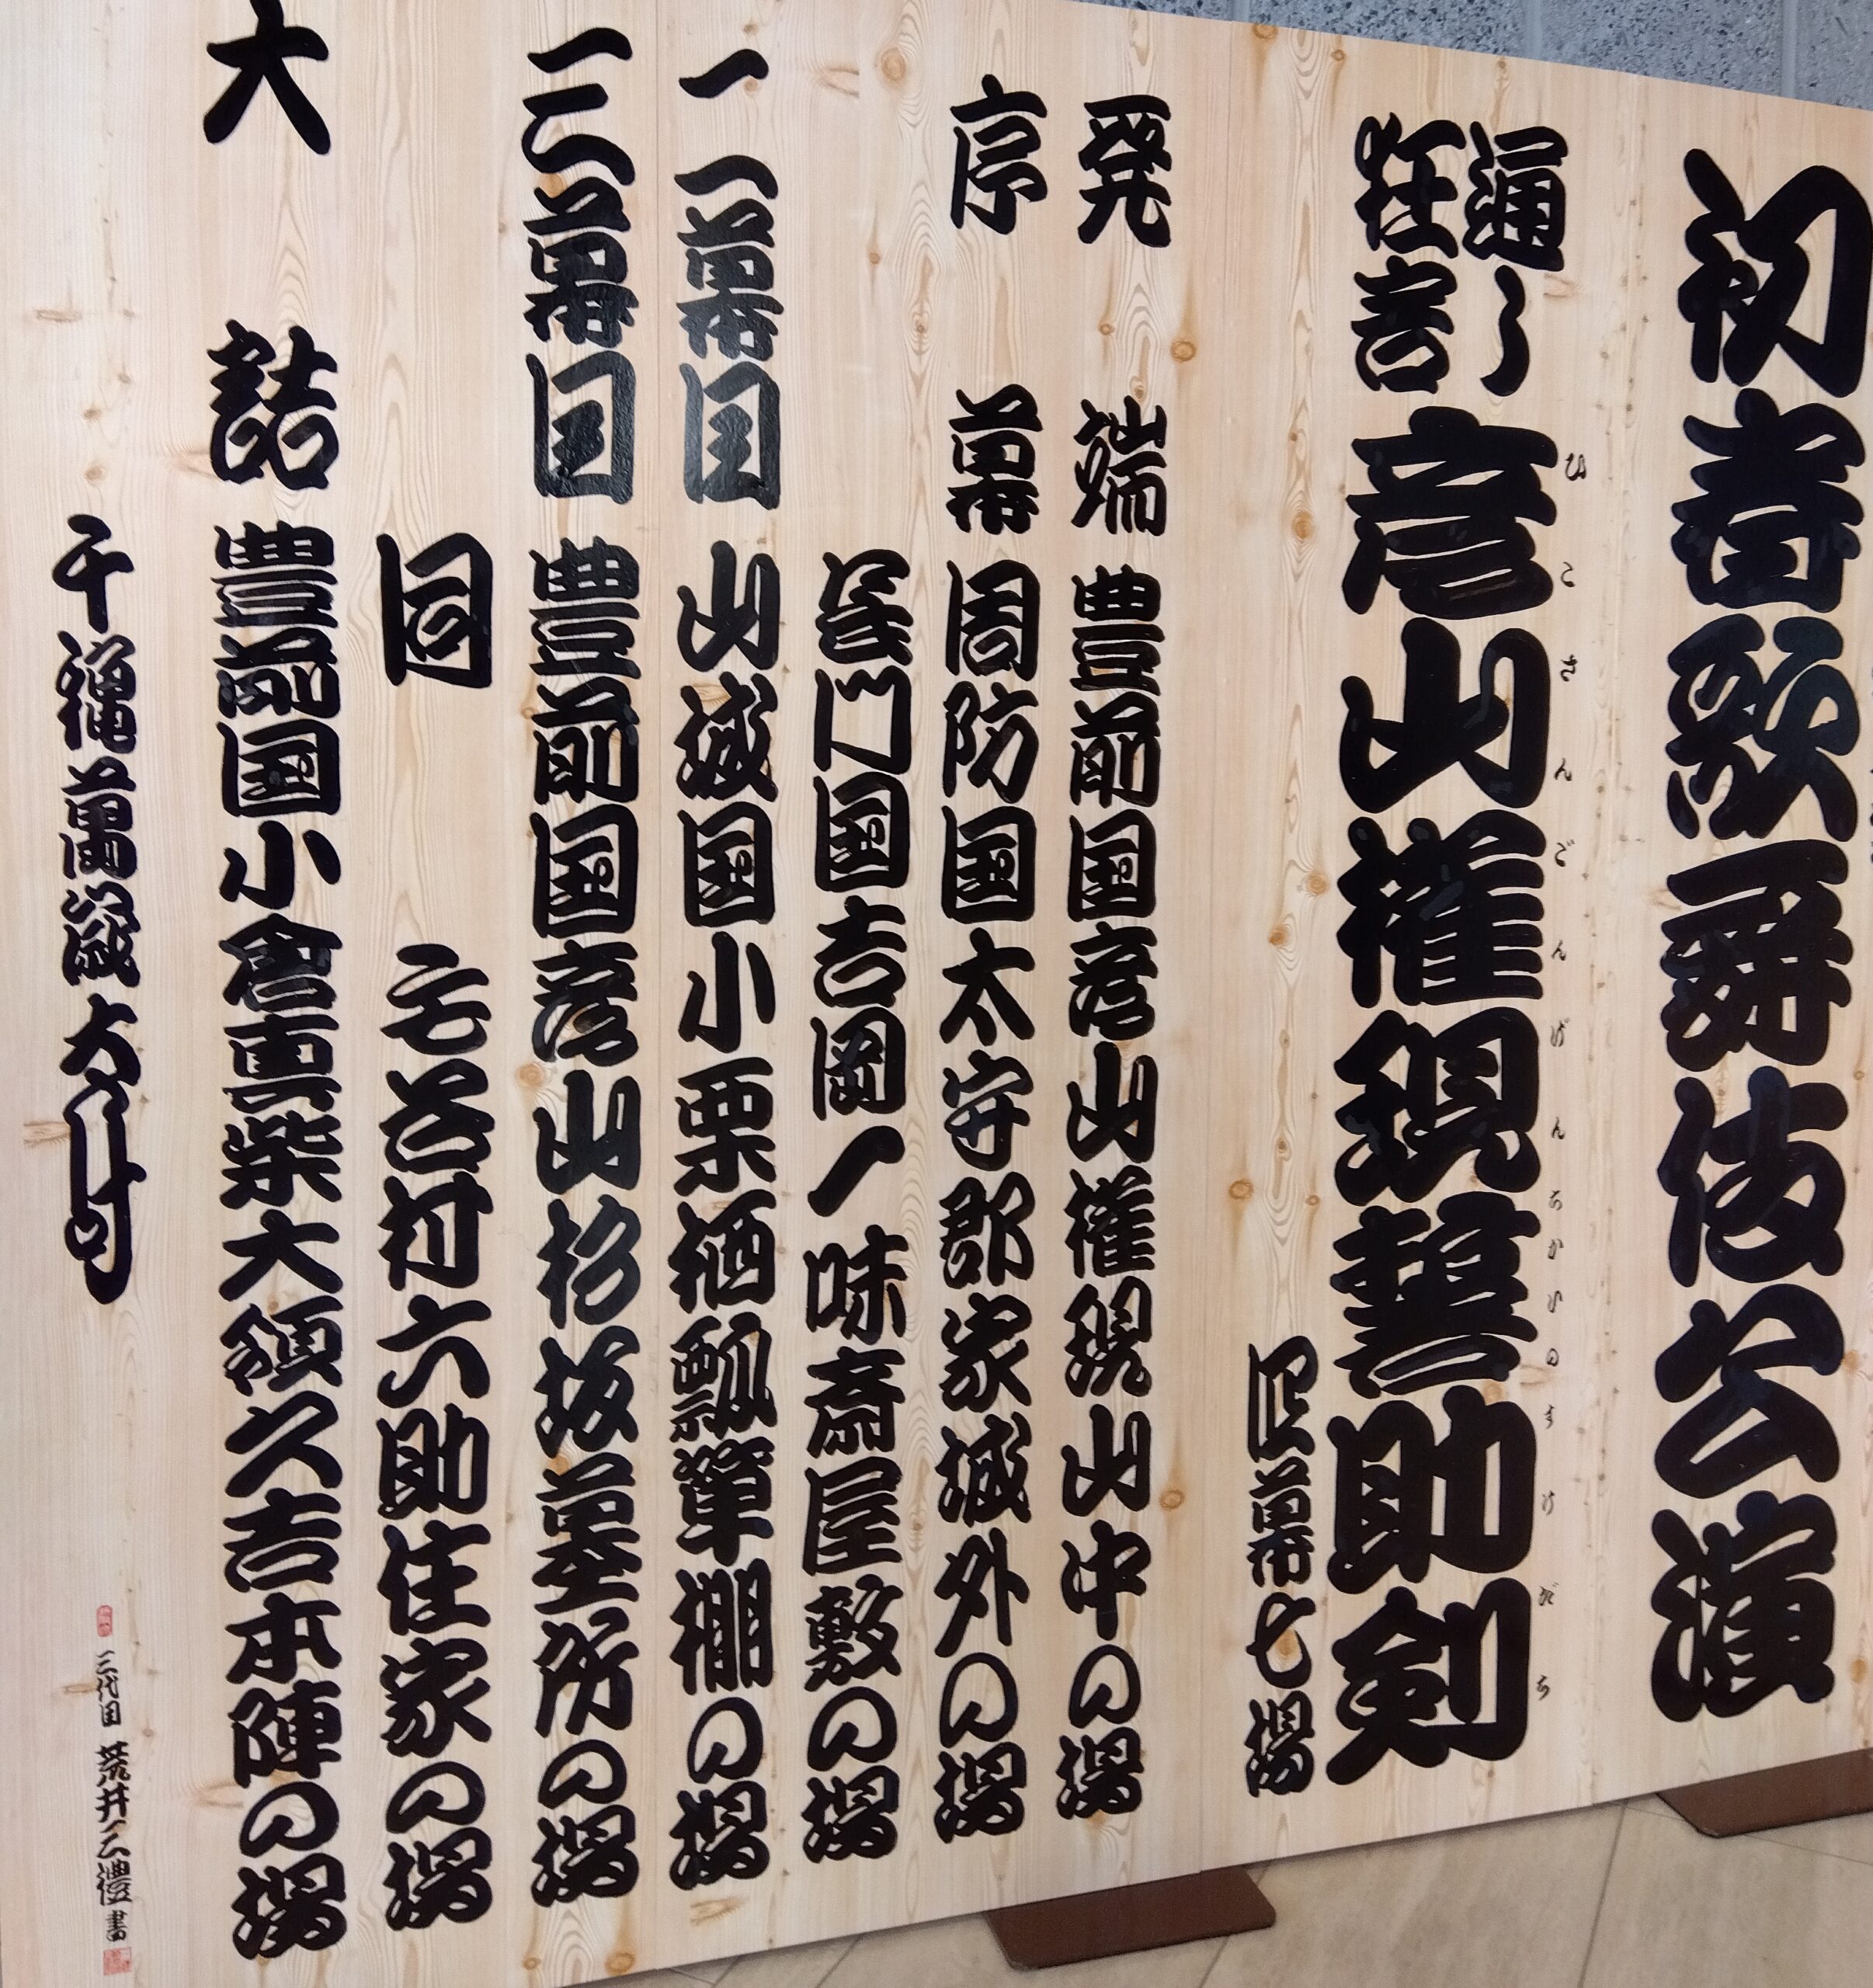 初春歌舞伎公演
通し
狂言
彦山権現誓助剣
ひこさんごんげんちかいのすけだち
四幕七場
発端 豊前国彦山権現山中の場
序幕 周防国太守郡家城外の場
長門国吉岡一味斎屋敷の場
二幕目 山城国小栗栖瓢箪棚の場
三幕目 豊前国彦山杉坂墓所の場
同 毛谷村六助住家の場
大詰 豊前国小倉真柴大領久吉本陣の場
千穐萬歳大々叶
三代目 荒井三禮書